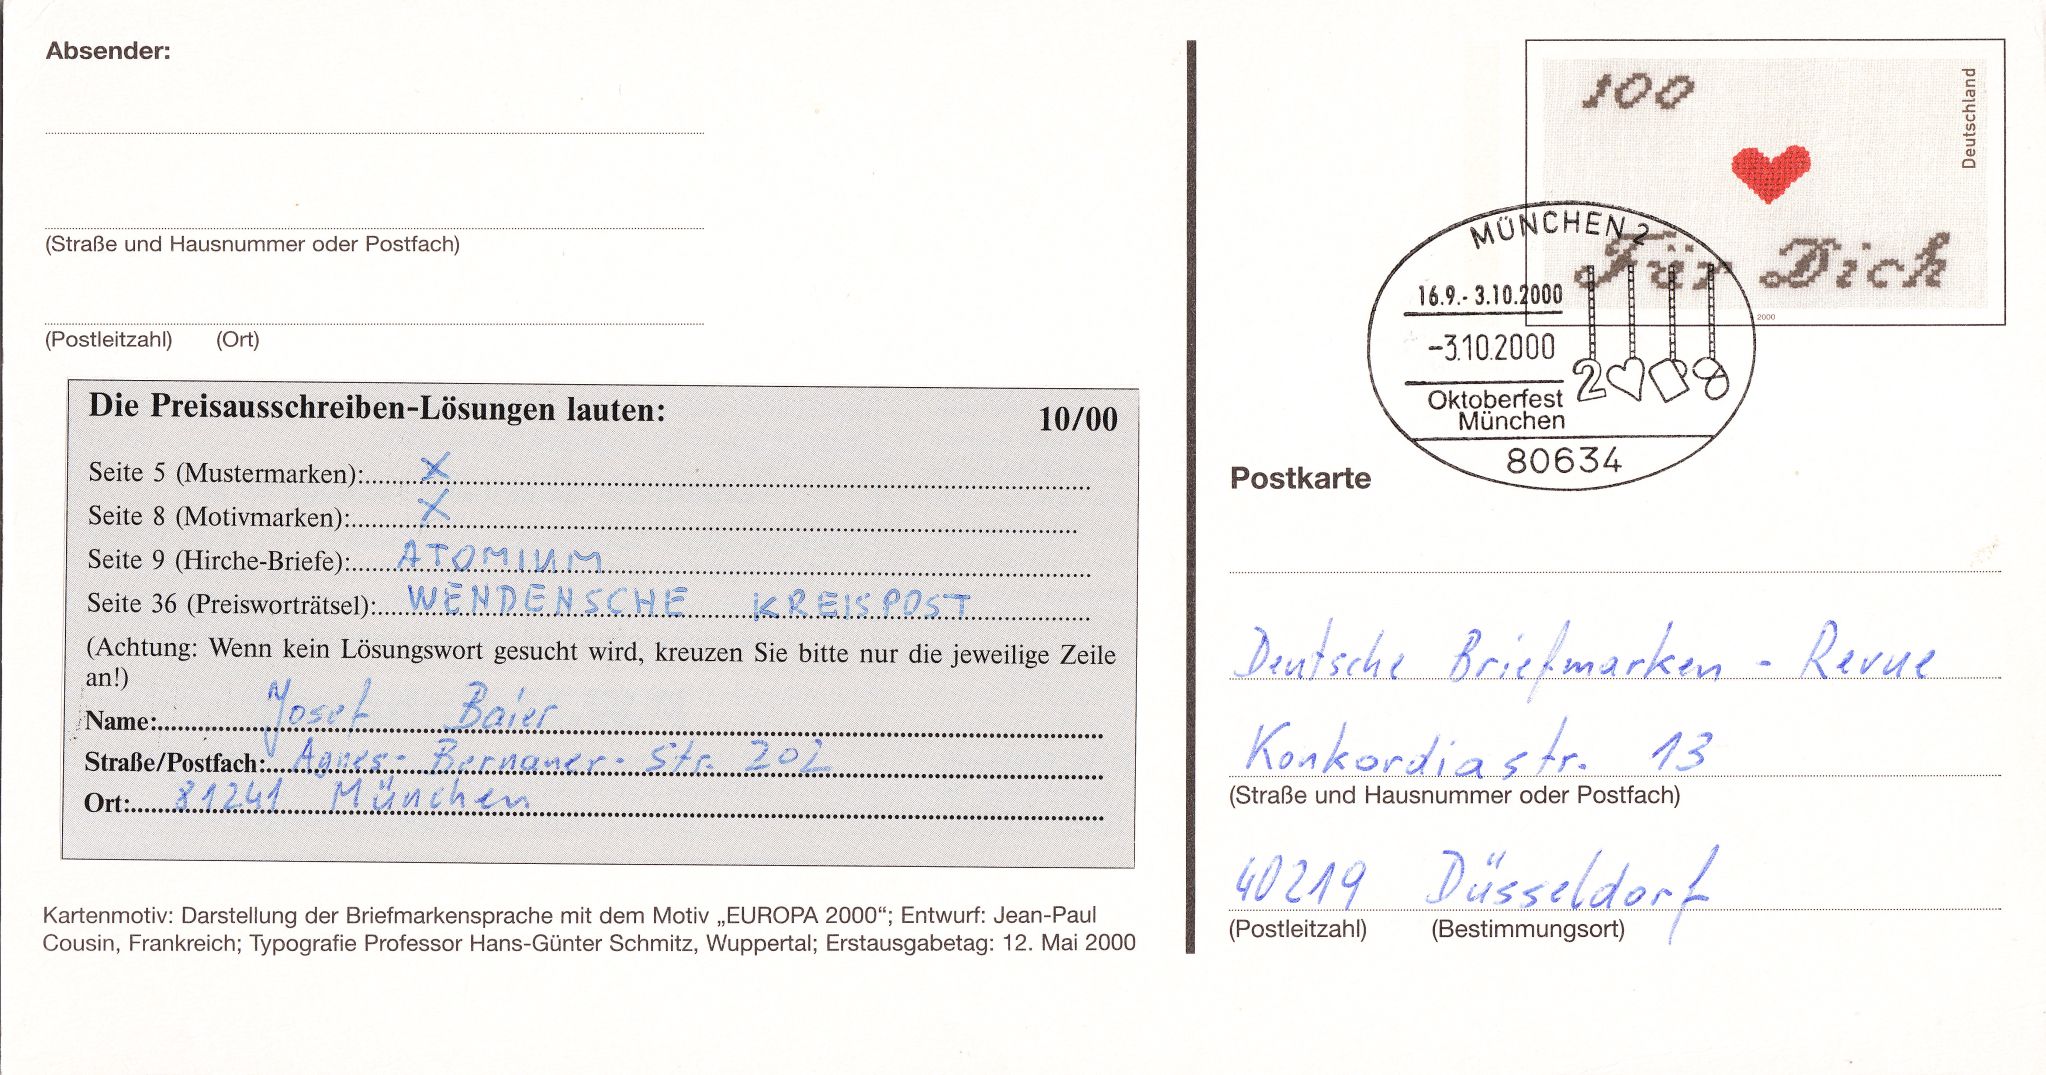 Absender:
(Straße und Hausnummer oder Postfach)
(Postleitzahl) (Ort)
Die Preisausschreiben-Lösungen lauten: 10/00
Seite 5 (Mustermarken): X
Seite 8 (Motivmarken): X
Seite 9 (Hirche-Briefe): ATOMIUM
Seite 36 (Preisworträtsel): WENDENSCHE KREISPOST
(Achtung: Wenn kein Lösungswort gesucht wird, kreuzen Sie bitte nur die jeweilige Zeile
an!)
Name: Josef Baier
Straße/Postfach: Agnes-Bernauer-Str. 202
Ort: 81241 München
Kartenmotiv: Darstellung der Briefmarkensprache mit dem Motiv „EUROPA 2000“; Entwurf: Jean-Paul
Cousin, Frankreich; Typografie Professor Hans-Günter Schmitz, Wuppertal; Erstausgabetag: 12. Mai 2000
100
Deutschland
Für Dich
2000
MÜNCHEN 2
16.9.- 3.10.2000
-3.10.2000
Oktoberfest
München
80634
Postkarte
Deutsche Briefmarken - Revue
Konkordiastr. 13
(Straße und Hausnummer oder Postfach)
40219 Düsseldorf
(Postleitzahl) (Bestimmungsort)